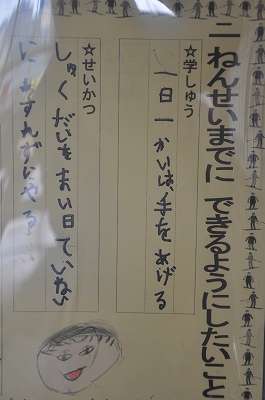 二ねんせいまでに できるようにしたいこと
☆学しゅう
一日一かいは、手をあげる
☆せいかつ
しゅくだいをまい日ていねい
にわすれずにやる